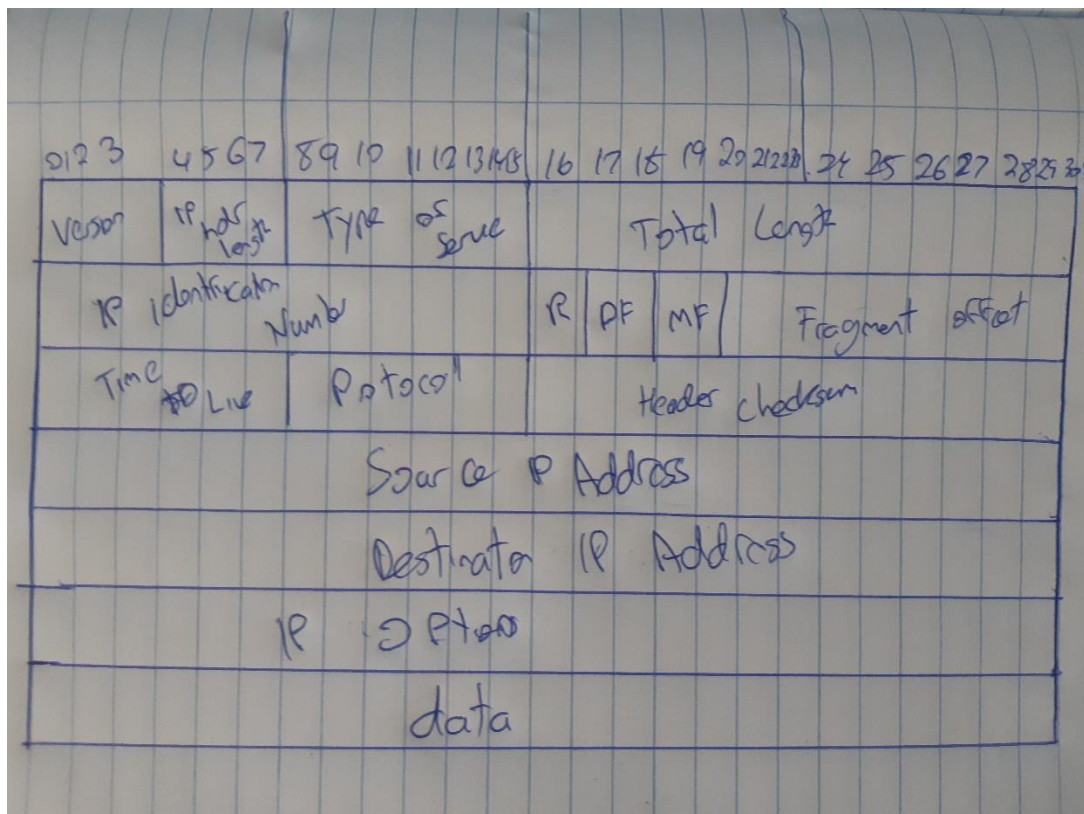 0 1 2 3 4 5 6 7 8 9 10 11 12 13 14 15 16 17 18 19 20 21 22 23 24 25 26 27 28 29 30
Verson IP hdr length Type of Serve Total Length
IP Identification Number R DF MF Fragment offset
Time to Live Protocol Header checksum
Source IP Address
Destination IP Address
IP Options
data